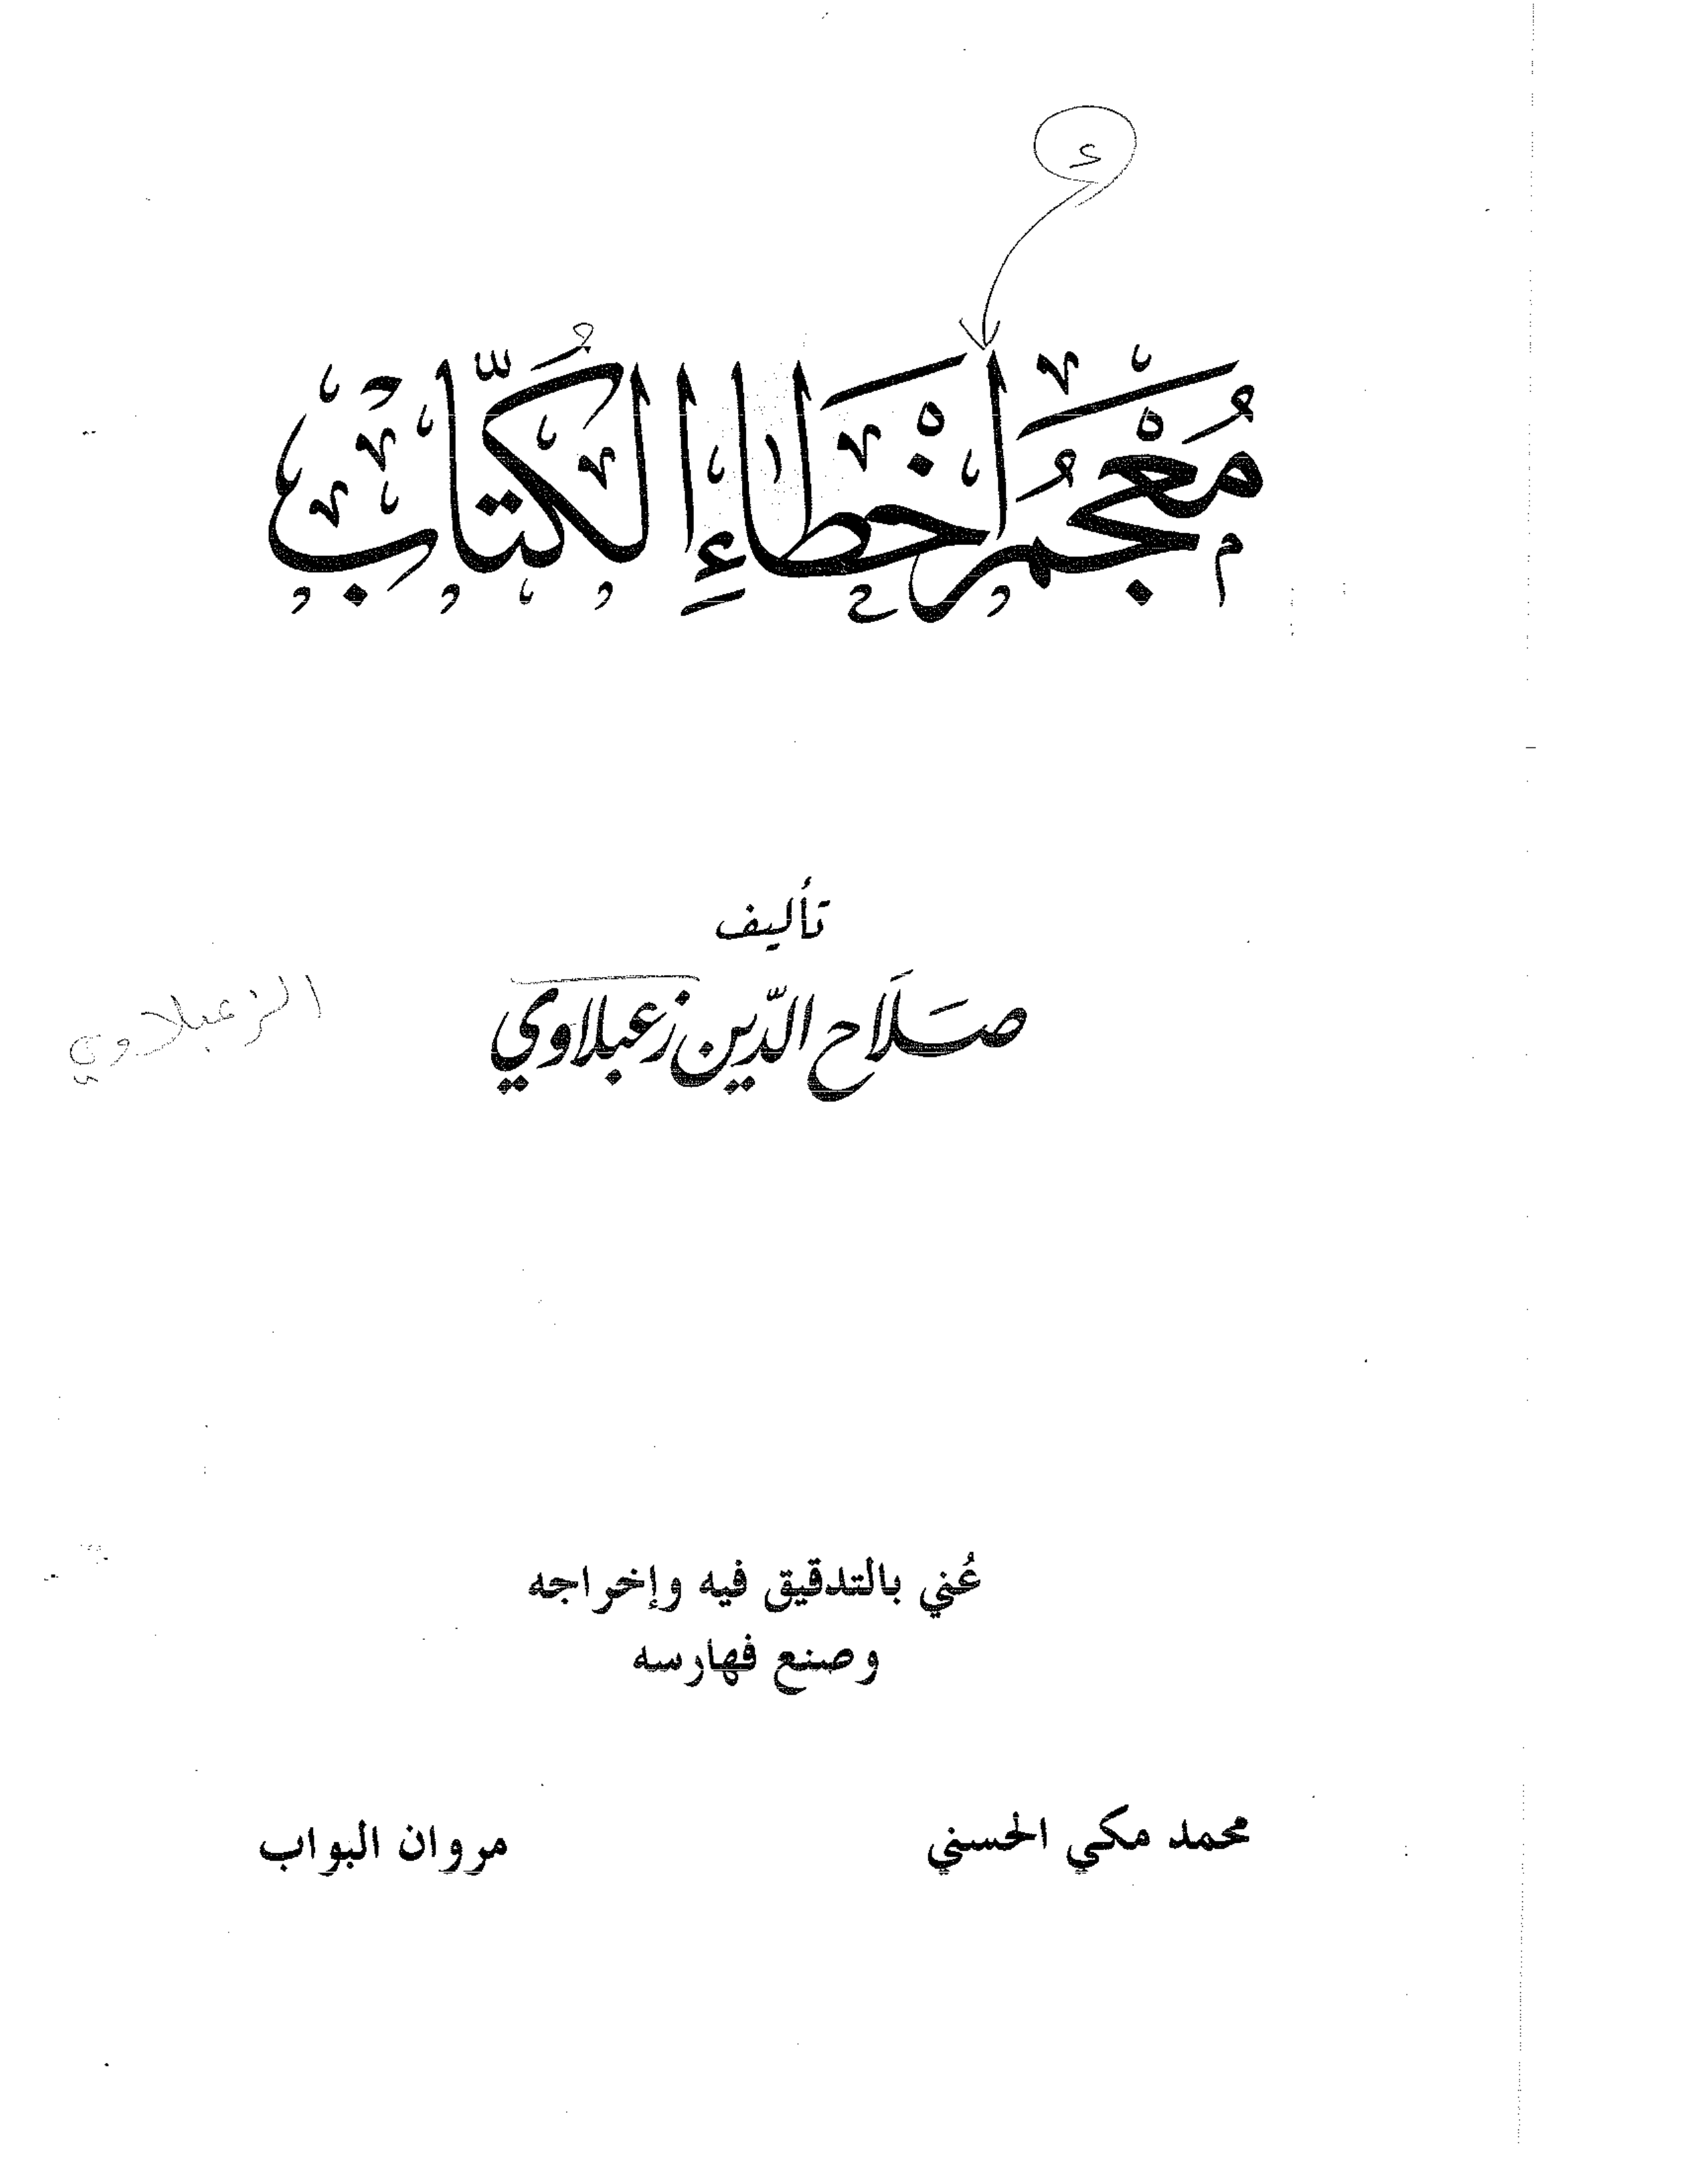 ء
مُعْجَمُ أَخْطَاءِ الكُتَّاب
تأليف
صَلَاح الدّين زعبلاوي
الزعبلاوي
عُني بالتدقيق فيه وإخراجه
وصنع فهارسه
محمد مكي الحسني
مروان البواب